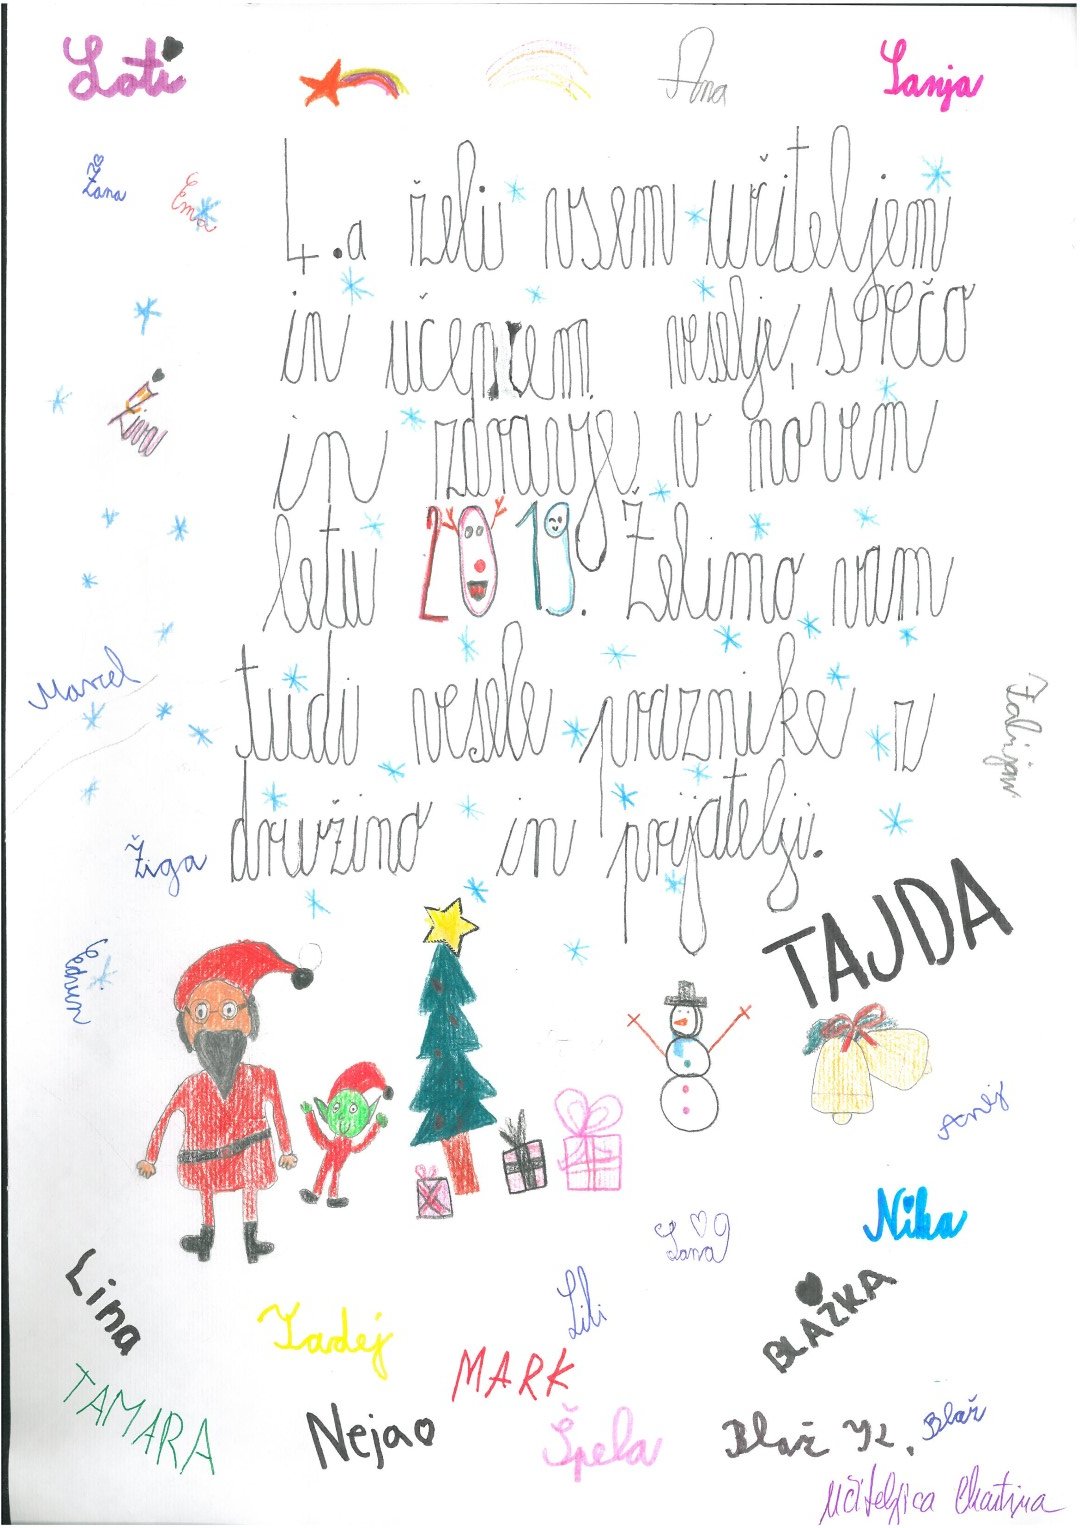 Loti
Ana
Sanja
Žana
Ema
4.a želi vsem učiteljem
in učencem veselje, srečo
in zdravje v novem
letu 2019. Želimo vam
tudi vesele praznike z
družino in prijatelji.
Marcel
Žiga
TAJDA
Anej
Nika
Lana
Lina
Lili
BLAŽKA
Tadej
MARK
TAMARA
Neja
Špela
Blaž K.
Blaž
Učiteljica